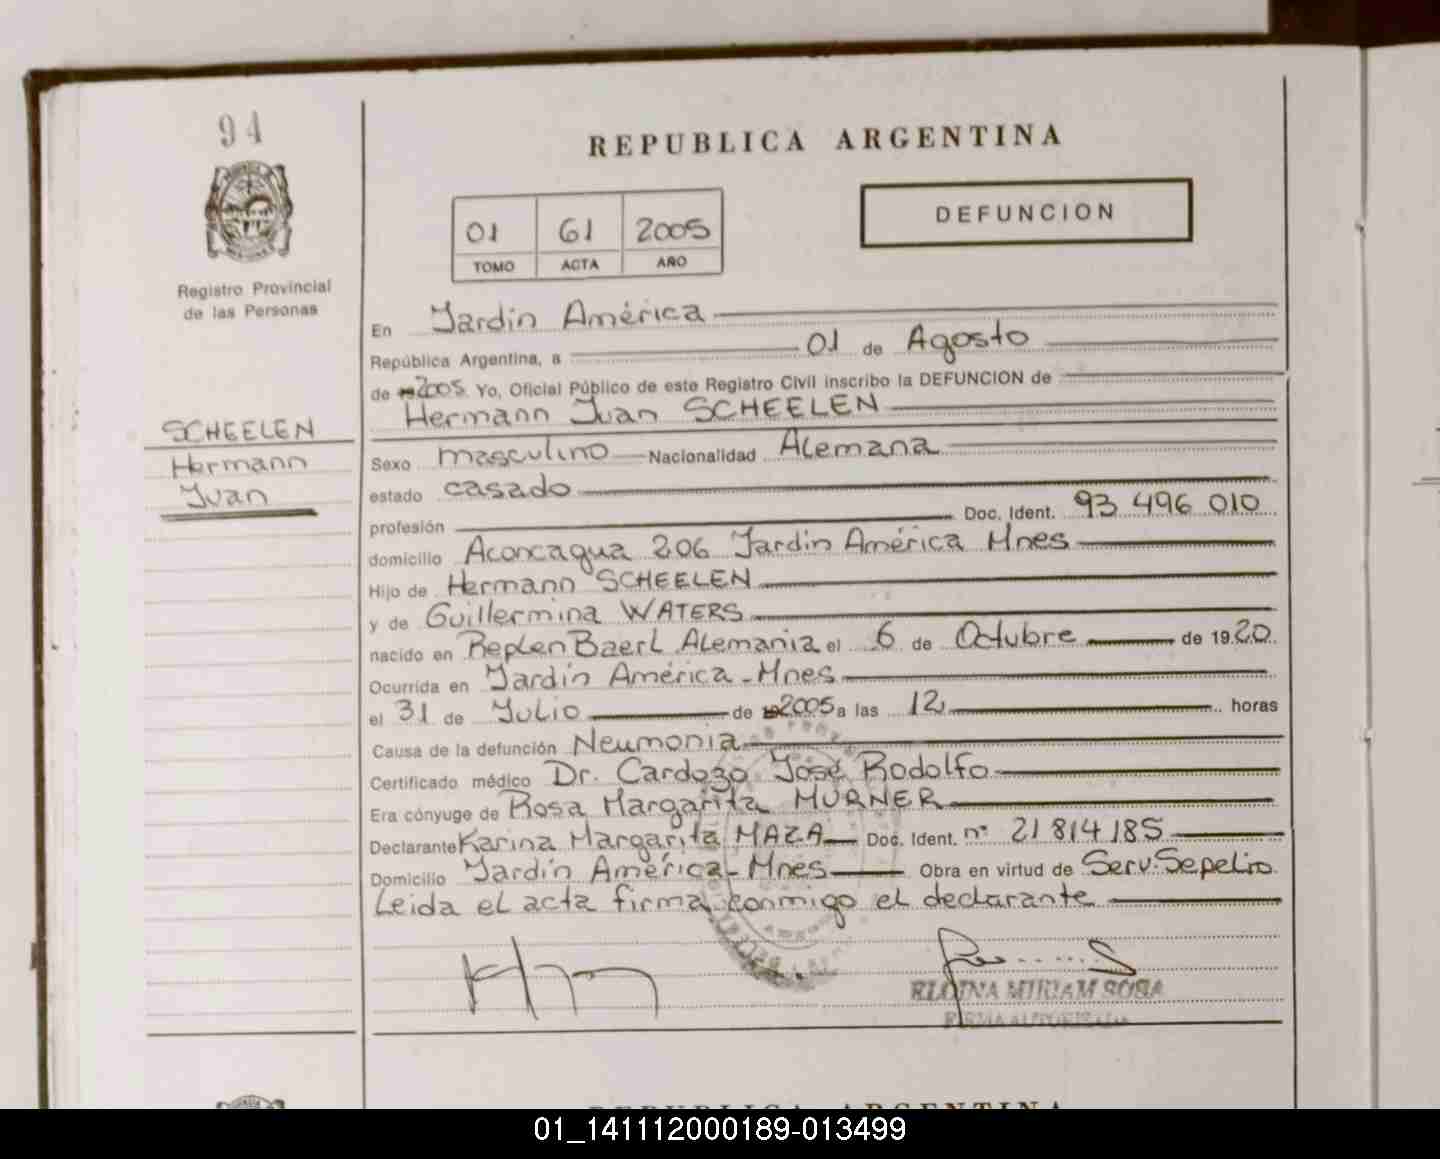 94
REPUBLICA ARGENTINA
DEFUNCION
01 61 2005
TOMO ACTA AÑO
Registro Provincial
de las Personas
SCHEELEN
Hermann
Juan
En Jardín América
República Argentina, a 01 de Agosto
de 2005 Yo, Oficial Público de este Registro Civil inscribo la DEFUNCION de
Hermann Juan SCHEELEN
Sexo masculino Nacionalidad Alemana
estado casado
profesión Doc. Ident. 93 496 010
domicilio Aconcagua 206 Jardín América Mnes
Hijo de Hermann SCHEELEN
y de Guillermina WATERS
nacido en Replen Baerl Alemania el 6 de Octubre de 1920
Ocurrida en Jardín América - Mnes
el 31 de Julio de 2005 a las 12 horas
Causa de la defunción Neumonia
Certificado médico Dr. Cardozo José Rodolfo
Era cónyuge de Rosa Margarita MURNER
Declarante Karina Margarita MAZA Doc. Ident. nº 21 814 185
Domicilio Jardín América - Mnes Obra en virtud de Serv. Sepelio
Leida el acta firma conmigo el declarante
ELOINA MIRIAM SOSA
FIRMA AUTORIZADA
REPUBLICA ARGENTINA
01_141112000189-013499